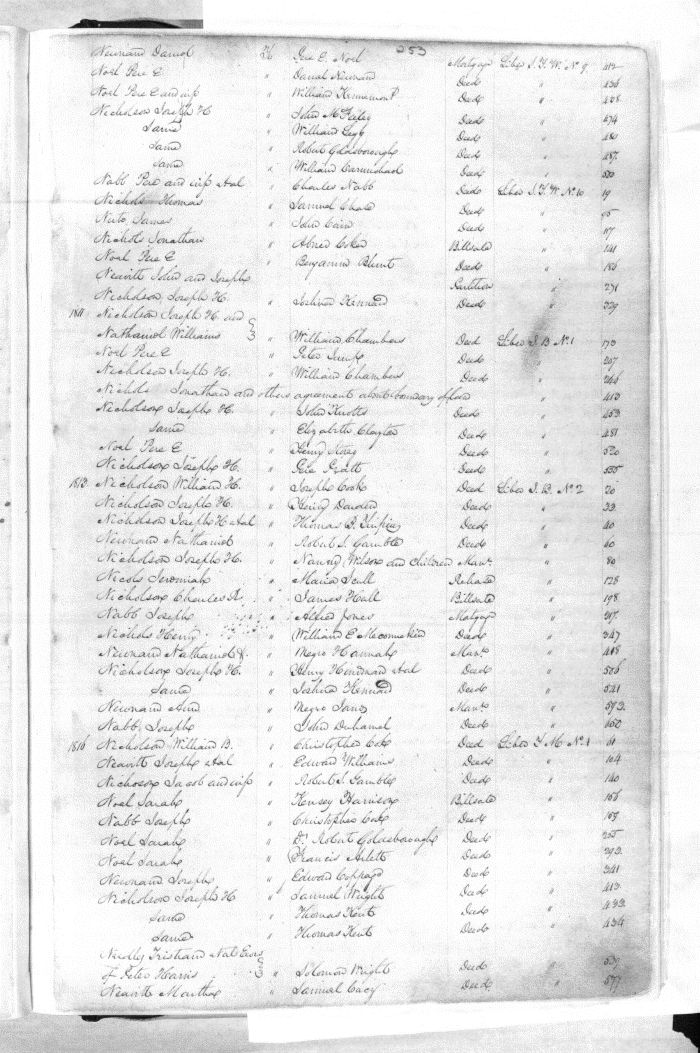 253
Newnand Daniel To Pere E. Noel Mortgage Liber J. T. W. No 9. 412
Noel Pere E " Daniel Newnand Deed " 436
Noel Pere E and wife " William Kennemont Deed " 438
Nicholson Joseph H " John McFeely Deed " 474
Same " William Legg Deed " 480
Same " Robert Goldsborough Deed " 487
Same " William Carmichael Deed " 500
Nabb Pere and wife & al " Charles Nabb Deed Liber J. T. W. No 10 19
Nichols Thomas " Samuel Chale Deed " 95
James " John Cain Deed " 117
Nichols Jonathan " Abner Coker Billsale " 141
Noel Pere E " Benjamin Blunt Deed " 186
Neavitt John and Joseph Partition " 271
Nicholson Joseph H. " Joshua Kennard Deed " 329
1811 Nicholson Joseph H. and
Nathaniel Williams " William Chambers Deed Liber J. B No 1 173
Noel Pere E " Peter Deed " 207
Nicholson Joseph H. " William Chambers Deed " 266
Nichols Jonathan and others agreement about boundary of land " 413
Nicholson Joseph H. " John Knotts Deed " 453
Same " Elizabeth Clayton Deed " 481
Noel Pere E " Henry Storey Deed " 520
Nicholson Joseph H. " Pere Pratt Deed " 535
Nicholson William H. " Joseph Cook Deed Liber J. B. No 2 20
Nicholson Joseph H. " Henry Darden Deed " 33
Nicholson Joseph H & al " Thomas B. Deed " 40
Newnand Nathaniel " Robert S. Gamble Deed " 60
Nicholson Joseph H. " Nancy Wilson and Children Manu. " 80
Nicols Jeremiah " Maria Scull Release " 128
Nicholson Charles A. " James Hall Billsale " 198
Nabb Joseph " Alfred Jones Mortgage "
Nichols Henry " William E Meconnekin Deed " 347
Newnand Nathaniel " Negro Hannah Manu. " 418
Nicholson Joseph H. " Henry Hindman & al Deed " 506
Same " Joshua Kennard Deed " 541
Newnand Ann " Negro Jane Manu. " 593
Nabb Joseph " John Duhamel Deed " 650
1816 Nicholson William B. " Christopher Cox Deed Liber T. M. No 1 61
Neavitt Joseph & al " Edward Williams Deed " 104
Nicholson Jacob and wife " Robert S. Gamble Deed " 140
Noel Sarah " Kensey Harrison Billsale " 156
Nabb Joseph " Christopher Cox Deed " 159
Noel Sarah " Dr. Robert Goldsborough Deed " 255
Noel Sarah " Francis Arlett Deed " 293
Newnand Joseph " Edward Coppage Deed " 341
Nicholson Joseph H " Samuel Wright Deed " 413
Same " Thomas Kent Deed " 433
Same " Thomas Kent Deed " 434
Needles Tristram
of Peter Harris " Solomon Wright Deed " 539
Neavitt Martha " Samuel Cacy Deed " 577